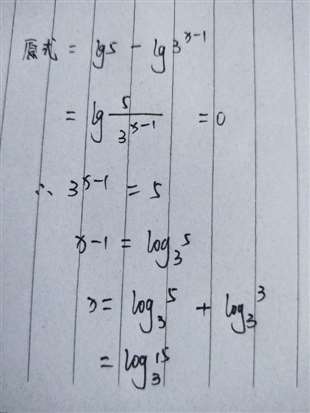 原式 = lg5 - lg3^{x-1}
= lg \frac{5}{3^{x-1}} = 0
∴ 3^{x-1} = 5
x-1 = log_3 5
x = log_3 5 + log_3 3
= log_3 15